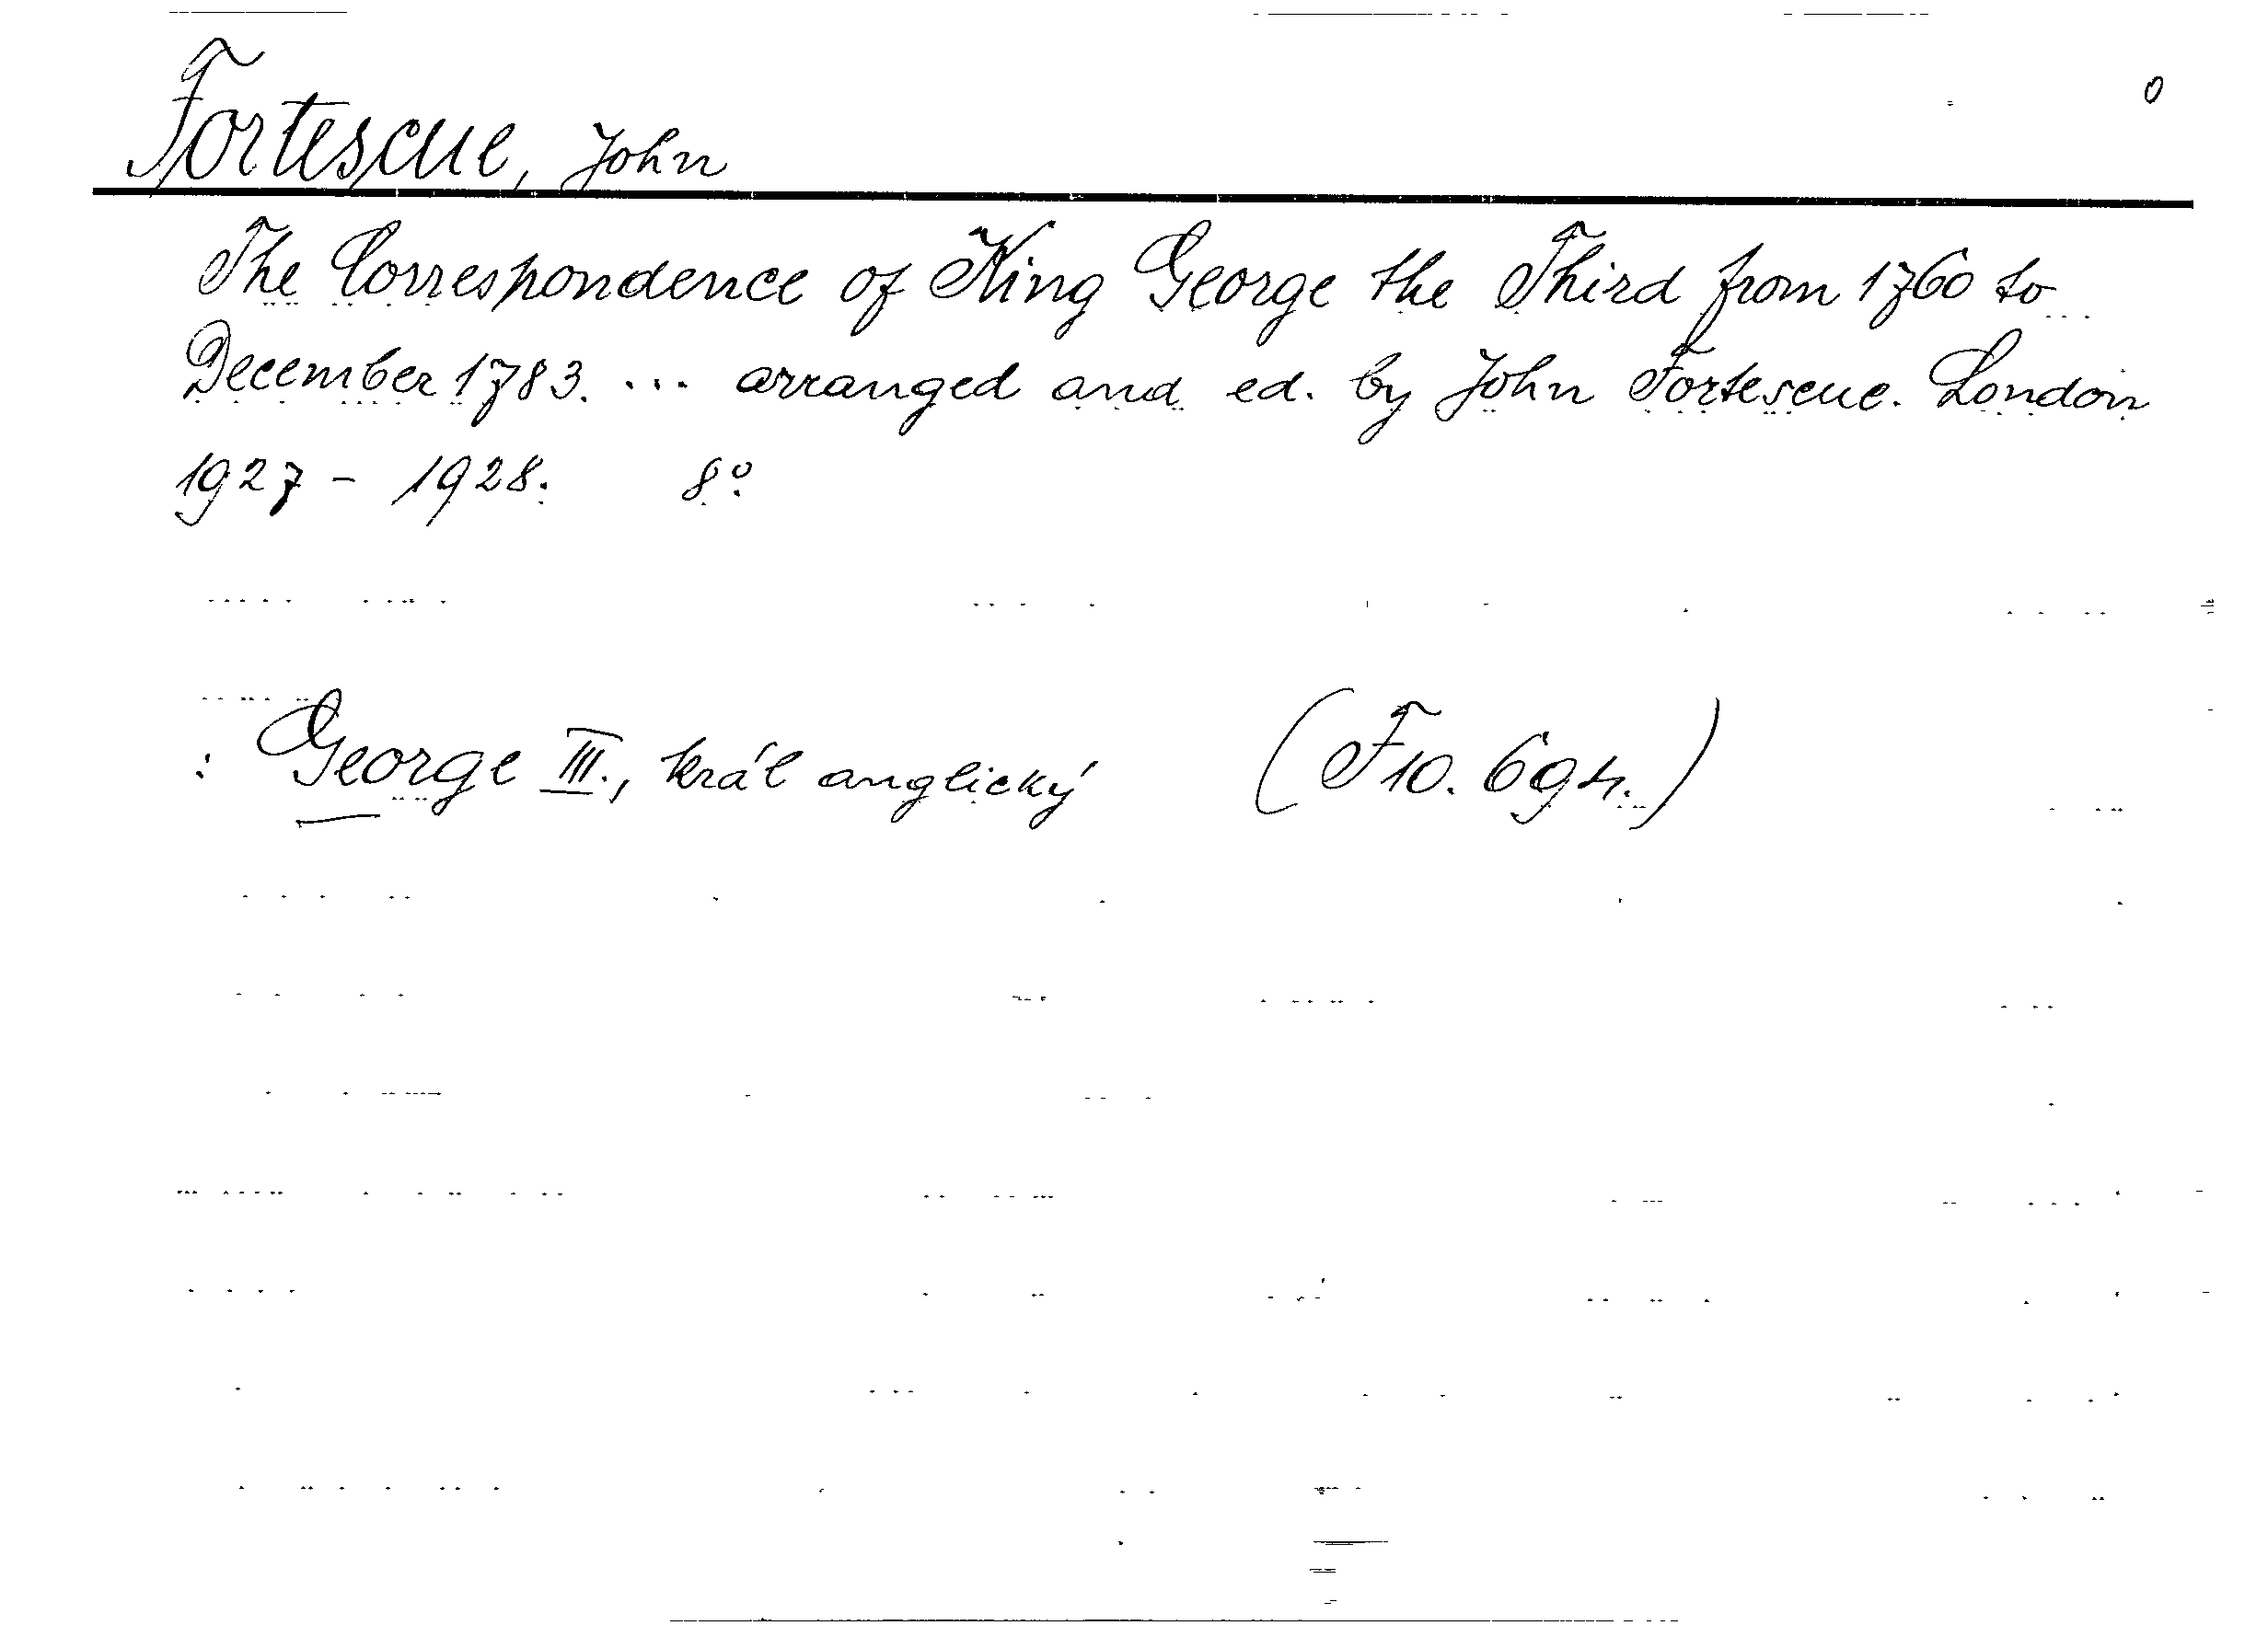 0
Fortescue, John
The Correspondence of King George the Third from 1760 to
December 1783. ... arranged and ed. by John Fortescue. London
1927 - 1928. 8°
: George III., král anglický (F10.694.)